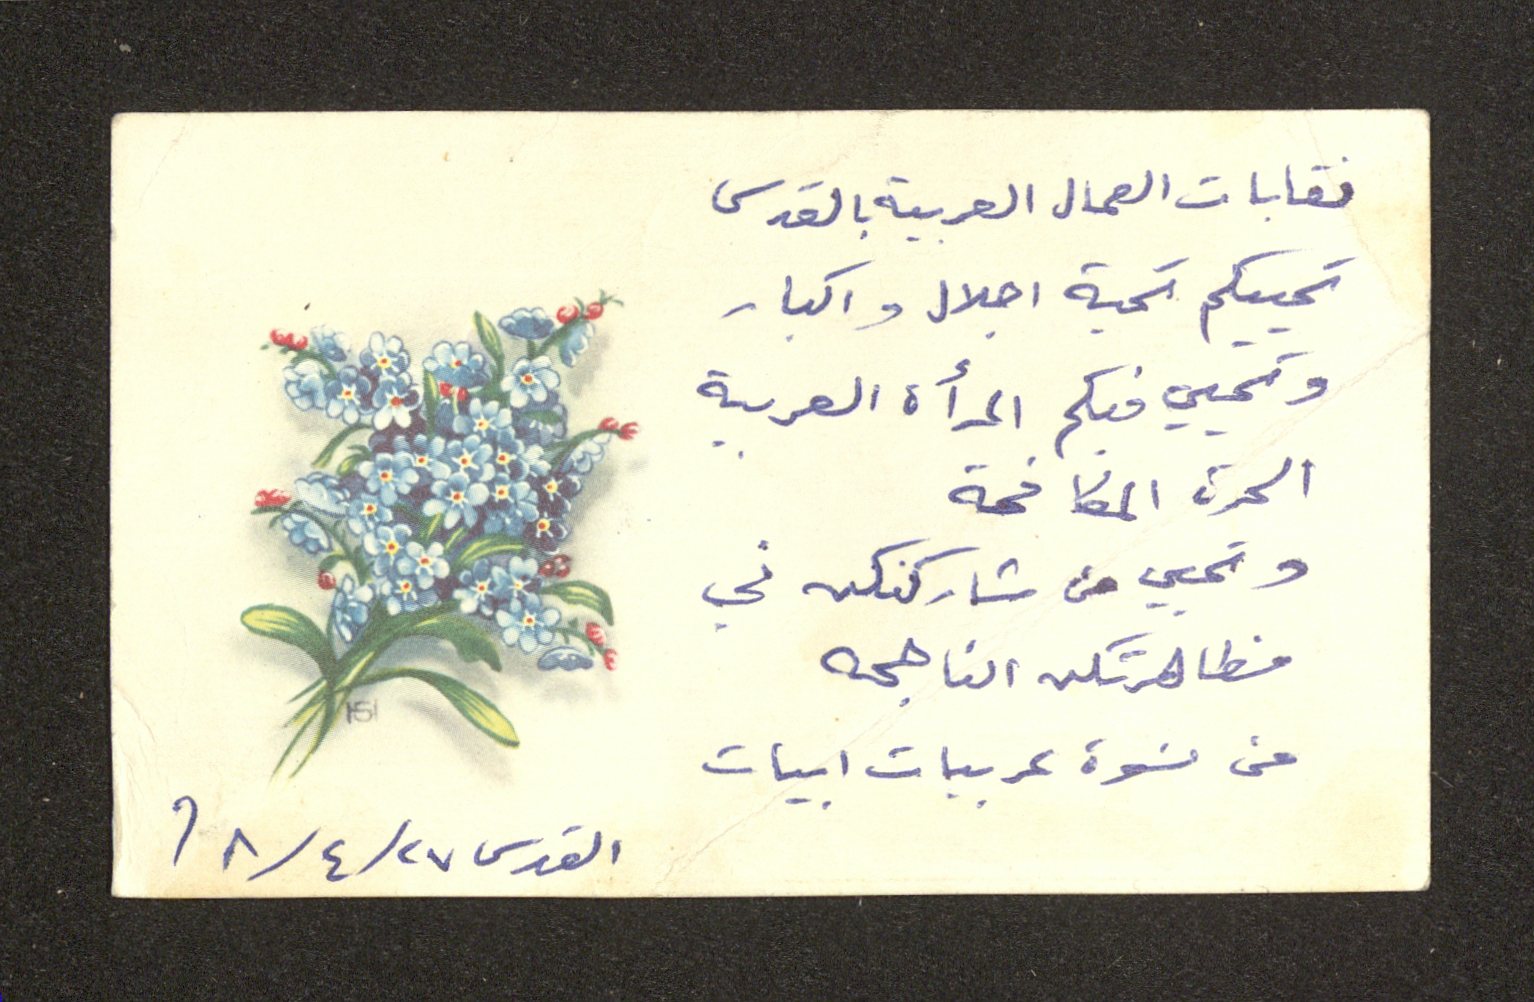 نقابات العمال العربية بالقدس
تحييكم تحية اجلال و اكبار
وتحيي فيكم المرأة العربية
الحرة المكافحة
وتحيي من شاركنكن في
مظاهرتكن الناجحه
من نسوة عربيات ابيات
القدس ٢٧/٤/٨
HSI